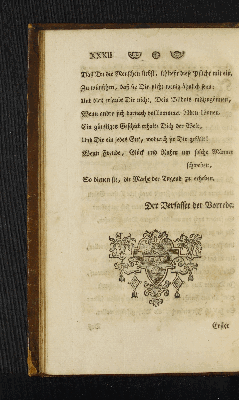 XXXII
Daß Du die Menschen liebst, schließt die Pflicht mit ein,
Zu wünschen, daß sie Dir nicht wenig ähnlich seyn;
Und dies erlaubt Dir nicht, Dein Bildniß mitzugönnen,
Wenn andre sich darnach vollkommner bilden können.
Ein günstiges Geschick erhalte Dich der Welt,
Und Dir ein jedes Gut, wodurch sie Dir gefällt!
Wenn Freude, Glück und Ruhm um solche Männer
schweben,
So dienen sie, die Macht der Tugend zu erheben.
Der Verfasser der Vorrede.
Erster